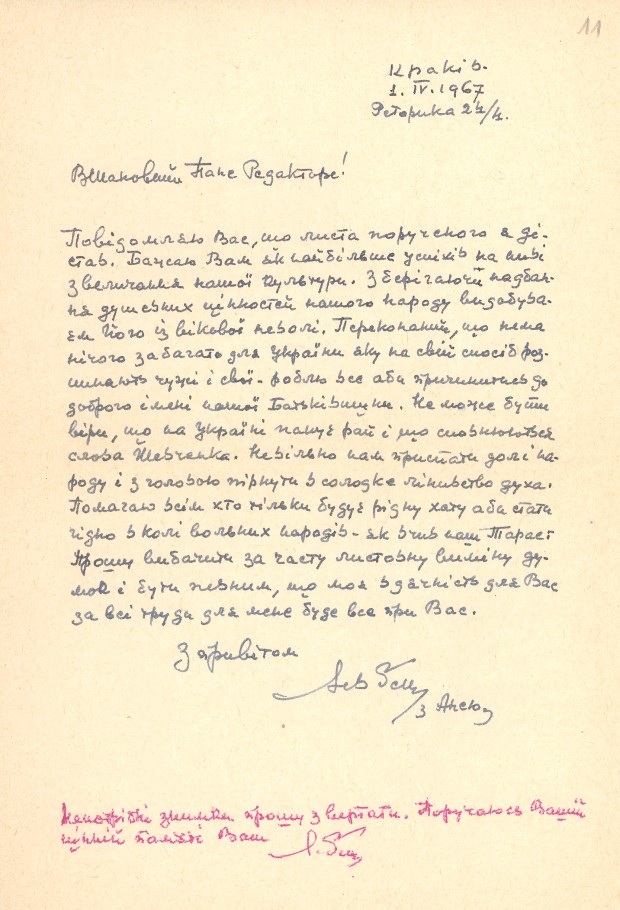 11
Краків.
1. IV. 1967
Реторика 24/4.
Вшановний Пане Редакторе!
Повідомляю Вас, що листа порученого я ді-
став. Бажаю Вам як найбільше успіхів на ниві
звеличання нашої культури. Зберігаючи надбан-
ня душевних цінностей нашого народу видобува-
єм його із вікової неволі. Переконаний, що нема
нічого забагато для України яку на свій спосіб роз-
пинають чужі і свої - роблю все аби причинитись до
доброго імені нашої Батьківщини. Не може бути
віри, що на Україні панує рай і що сповнюються
слова Шевченка. Невільно нам приспати долі на-
роду і з головою пірнути в солодке лінивство духа.
Помагаю всім хто тільки будує рідну хату аби стати
гідно в колі вольних народів - як вчив наш Тарас!
Прошу вибачити за часту листовну виміну ду-
мок і бути певним, що моя вдячність для Вас
за всі труди для мене буде все при Вас.
З привітом
Лев Ґец
з Анею
знимки прошу звертати. Поручаюсь Вашій
цінній памяті Ваш
Л. Ґец